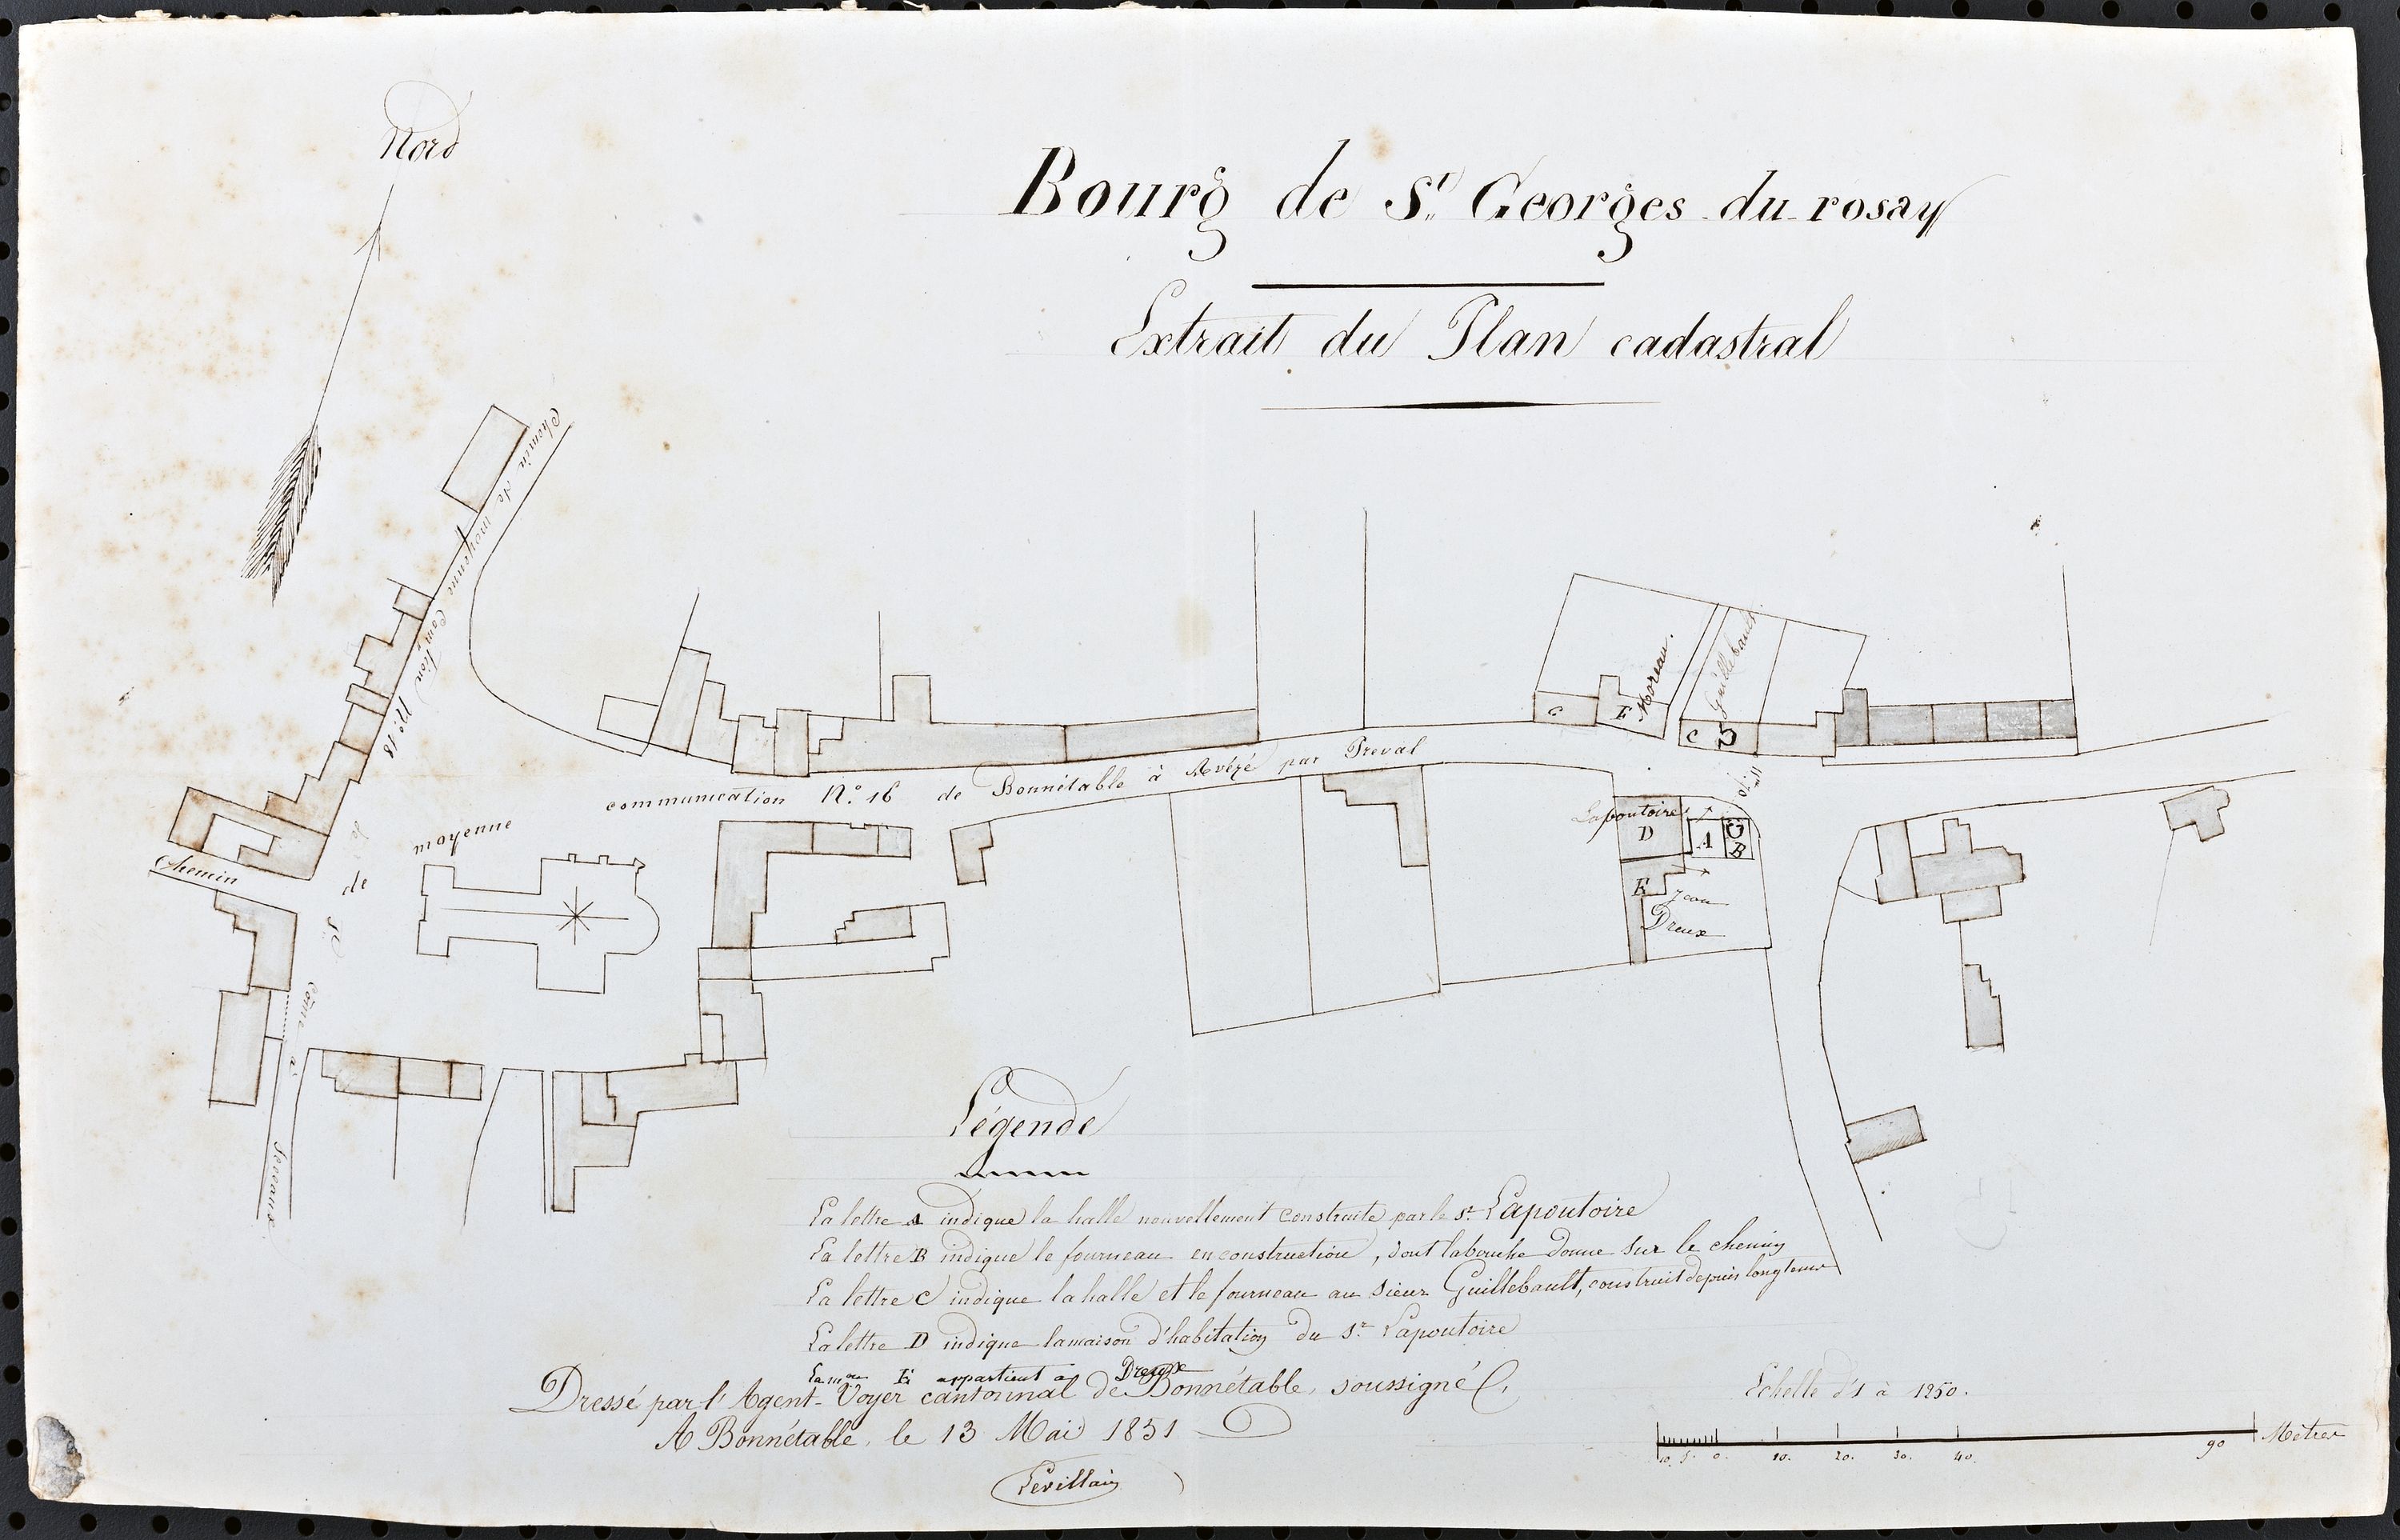 Nord
Bourg de St. Georges du rosay
Extrait du Plan cadastral
Chemin de moyenne Com.tion No. 18
de St.
Come à Sceaux
Chemin de
moyenne communication No. 16 de Bonnétable à Avézé par Préval
C
F
Moreau.
Guillebault
C
Lapoutoire
D
A
B
E
Jean
Dreux
Légende
La lettre A indique la halle nouvellement construite par le sr. Lapoutoire
La lettre B indique le fourneau en construction, dont la bouche donne sur le chemin
La lettre C indique la halle et le fourneau au sieur Guillebault, construit depuis longtems
La lettre D indique la maison d'habitation du Sr. Lapoutoire
La mon E appartient à Dreux
Dressé par l'Agent-Voyer cantonnal de Bonnétable, soussigné
A Bonnétable, le 13 Mai 1851
Levillain
Echelle d'1 à 1250.
10. 5. 0. 10. 20. 30. 40. 90 Mètres